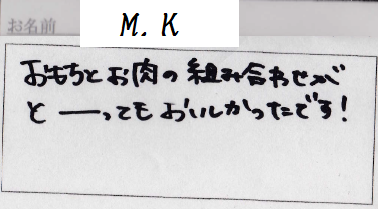 お名前
M. K
おもちとお肉の組み合わせが
と ーってもおいしかったです!